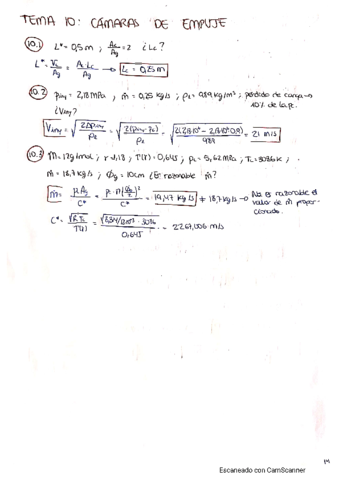 TEMA 10: CÁMARAS DE EMPUJE
10.1 L* = 0,5 m ; Ac/Ag = 2 ¿Lc?
L* = Vc/Ag = Ac·Lc/Ag → Lc = 0,25 m
10.2 Piny = 2,18 MPa , ṁ = 0,25 kg/s ; ρl = 989 kg/m³ ; pérdida de carga →
10% de la pc.
¿Viny?
Viny = √(2ΔPiny/ρl) = √(2(Piny - Pc)/ρl) = √(2(2,18·10⁶ - 2,18·10⁶·0,9)/989) = 21 m/s
10.3 M = 12 g/mol , r = 1,18 , Γ(r) = 0,645 ; Pc = 5,62 MPa , Tc = 3086 K ;
ṁ = 18,7 kg/s , Øg = 10 cm ¿Es razonable ṁ?
ṁ = Pc Ag/C* = P·π(Øg/2)²/C* = 19,47 kg/s ≠ 18,7 kg/s → No es razonable el
valor de ṁ propor-
cionado.
C* = √(R Tc)/Γ(r) = 2267,006 m/s
Escaneado con CamScanner